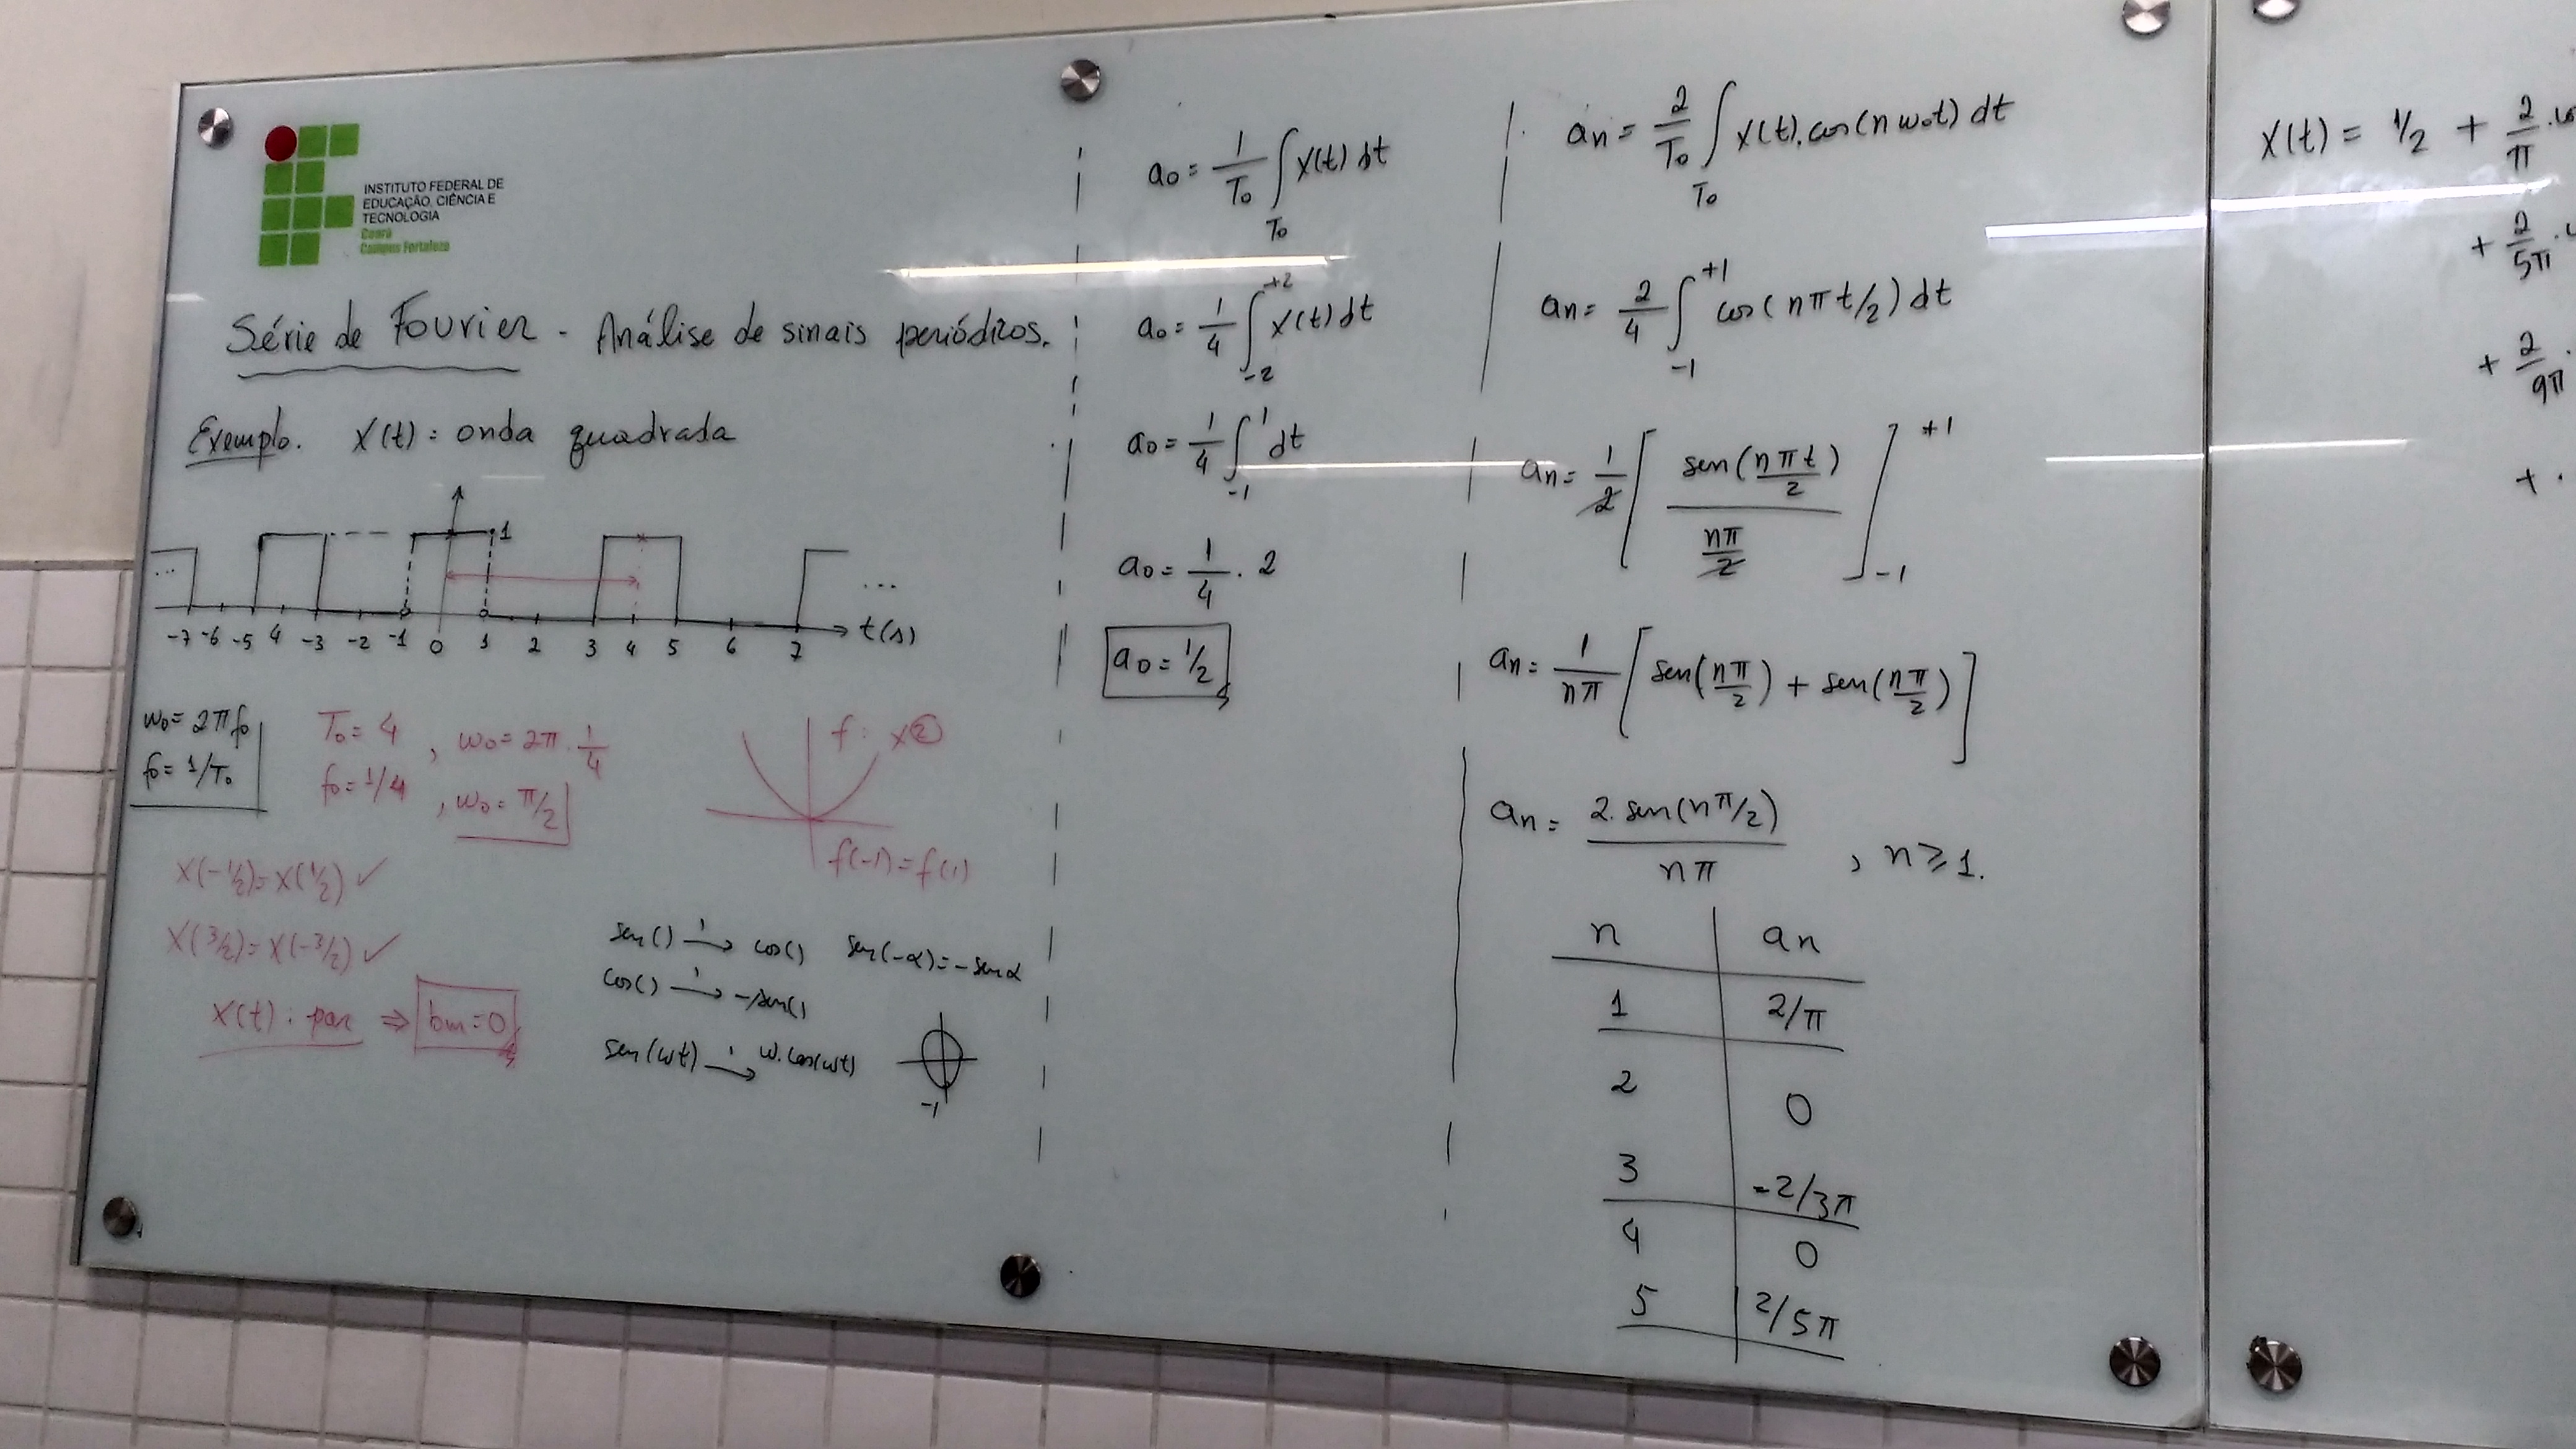 INSTITUTO FEDERAL DE
EDUCAÇÃO, CIÊNCIA E
TECNOLOGIA
Ceará
Campus Fortaleza
Série de Fourier - Análise de sinais periódicos.
Exemplo. X(t): onda quadrada
1
... ...
-7 -6 -5 4 -3 -2 -1 0 1 2 3 4 5 6 7 t(s)
ω0= 2πf0
f0= 1/T0
T0= 4 , ω0= 2π.1/4
f0= 1/4 , ω0= π/2
f: x②
f(-1)=f(1)
X(-1/2)=X(1/2) ✓
X(3/2)=X(-3/2) ✓
X(t): par ⇒ bm=0
sen() →' cos() sen(-α)=-senα
cos() →' -sen()
sen(ωt) →' ω.cos(ωt)
-1
a0= 1/T0 ∫T0 X(t) dt
a0= 1/4 ∫-2^+2 X(t)dt
a0= 1/4 ∫-1^1 dt
a0= 1/4 . 2
a0= 1/2
an= 2/T0 ∫T0 X(t).cos(nω0t) dt
an= 2/4 ∫-1^+1 cos(nπt/2) dt
an= 1/2 [ sen(nπt/2) / (nπ/2) ]-1^+1
an= 1/nπ [ sen(nπ/2) + sen(nπ/2) ]
an= 2.sen(nπ/2) / nπ , n ≥ 1.
n an
1 2/π
2 0
3 -2/3π
4 0
5 2/5π
X(t) = 1/2 + 2/π .
+ 2/5π .
+ 2/9π .
+ .